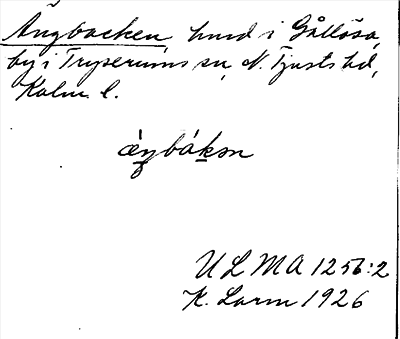 Ängbacken, hmd i Gållösa,
by i Tryserums sn, N. Tjusts hd,
Kalm. l.
ǽŋbákən
ULMA 1256:2
K. Larm 1926